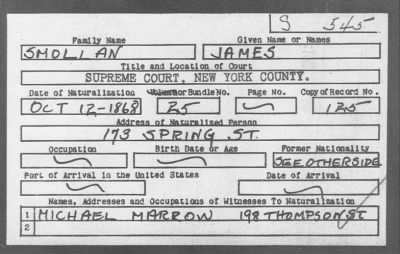 S 545
Family Name Given Name or Names
SMOLLAN JAMES
Title and Location of Court
SUPREME COURT, NEW YORK COUNTY.
Date of Naturalization Volume or Bundle No. Page No. Copy of Record No.
OCT 12-1868 25 125
Address of Naturalized Person
173 SPRING ST.
Occupation Birth Date or Age Former Nationality
SEE OTHERSIDE
Port of Arrival in the United States Date of Arrival
Names, Addresses and Occupations of Witnesses To Naturalization
1 MICHAEL MARROW 198 THOMPSON ST.
2